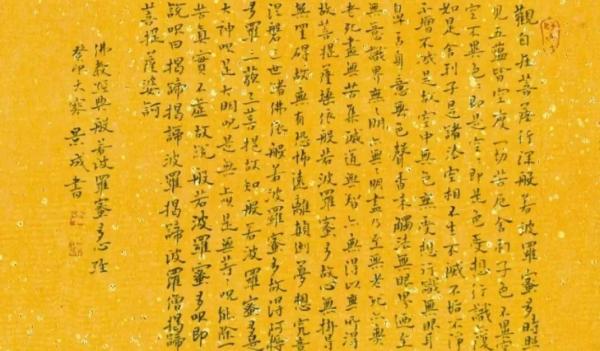 觀自在菩薩行深般若波羅蜜多時照
見五蘊皆空度一切苦厄舍利子色不異
空〻不異色〻即是空〻即是色受想行識亦復
如是舍利子是諸法空相不生不滅不垢不淨
不增不減是故空中無色無受想行識無眼耳
鼻舌身意無色聲香味觸法無眼界乃至
無意識界無〻明亦無〻明盡乃至無老死亦無
老死盡無苦集滅道無智亦無得以無所得
故菩提薩埵依般若波羅蜜多故心無掛礙
無罣礙故無有恐怖遠離顛倒夢想究竟
涅槃三世諸佛依般若波羅蜜多故得阿耨
多羅三藐三菩提故知般若波羅蜜多是
大神呪是大明呪是無上呪是無等〻呪能除一
切苦真實不虛故說般若波羅蜜多呪即
說呪曰揭諦揭諦波羅揭諦波羅僧揭諦
菩提薩婆訶
佛教經典般若波羅蜜多心經
癸卯大寒 景成書